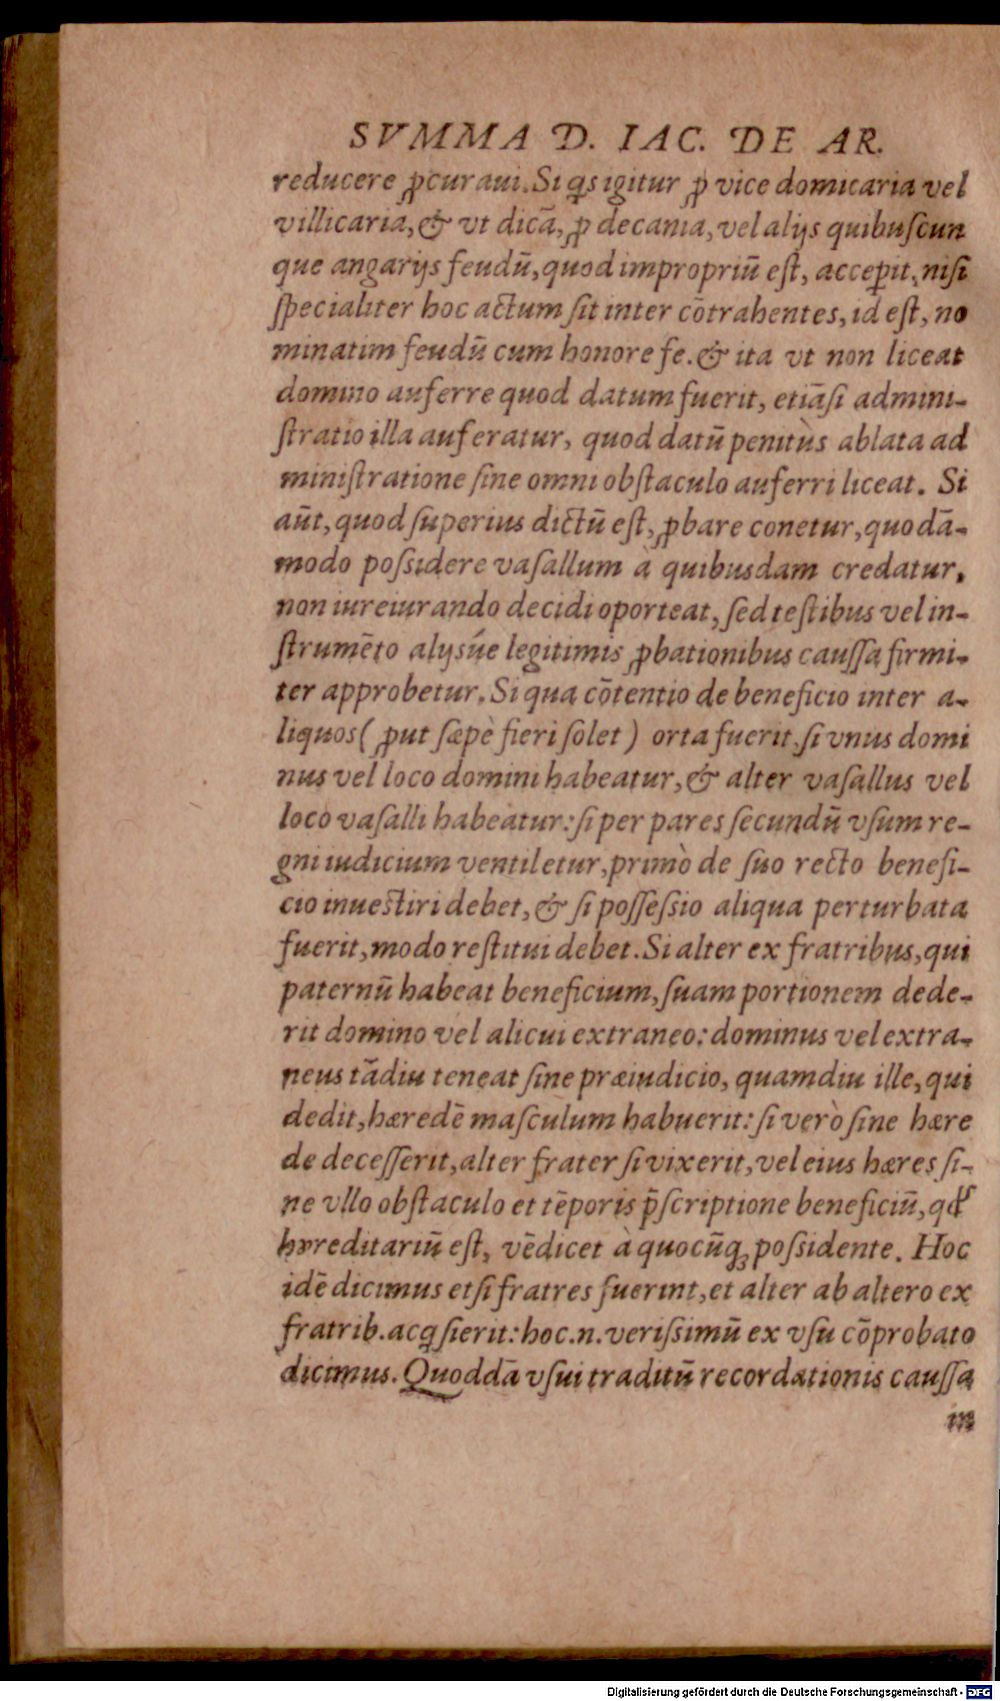 SVMMA D. IAC. DE AR.
reducere ꝓcuraui. Si qͥs igitur ꝓ vice domicaria vel
villicaria, & vt dicā, ꝓ decania, vel alijs quibuſcun
que angarijs feudū, quod impropriū eſt, acceꝑit, niſi
ſpecialiter hoc actum ſit inter cōtrahentes, id eſt, no
minatim feudū cum honore fe. & ita vt non liceat
domino auferre quod datum fuerit, etiāſi admini-
ſtratio illa auferatur, quod datū penitùs ablata ad
miniſtratione ſine omni obſtaculo auferri liceat. Si
aūt, quod ſuperius dictū eſt, ꝓbare conetur, quodā-
modo poſsidere vaſallum à quibusdam credatur,
non iureiurando decidi oporteat, ſed teſtibus vel in-
ſtrumēto alijsúe legitimis ꝓbationibus cauſſa firmi-
ter approbetur. Si qua cōtentio de beneficio inter a-
liquos ( ꝓut ſæpè fieri ſolet ) orta fuerit, ſi vnus domi
nus vel loco domini habeatur, & alter vaſallus vel
loco vaſalli habeatur: ſi per pares ſecundū vſum re-
gni iudicium ventiletur, primò de ſuo recto benefi-
cio inueſtiri debet, & ſi poſſeſsio aliqua perturbata
fuerit, modo reſtitui debet. Si alter ex fratribus, qui
paternū habeat beneficium, ſuam portionem dede-
rit domino vel alicui extraneo: dominus vel extra-
neus tādiu teneat ſine præiudicio, quamdiu ille, qui
dedit, hæredē maſculum habuerit: ſi verò ſine hære
de deceſſerit, alter frater ſi vixerit, vel eius hæres ſi-
ne vllo obſtaculo et tēporis p̄ſcriptione beneficiū, qđ
hæreditariū eſt, vēdicet à quocūqꝫ poſsidente. Hoc
idē dicimus et ſi fratres fuerint, et alter ab altero ex
fratrib. acqͥſierit: hoc .n. veriſsimū ex vſu cōprobato
dicimus. Quoddā vſui traditū recordationis cauſſa
in
Digitalisierung gefördert durch die Deutsche Forschungsgemeinschaft - DFG